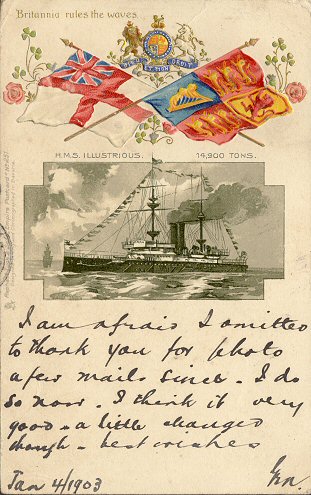 Britannia rules the waves.
H.M.S. ILLUSTRIOUS. 14,900 TONS.
I am afraid I omitted
to thank you for photo
a few mails since. I do
so now. I think it very
good - a little changed
though - best wishes
Jan 4/1903